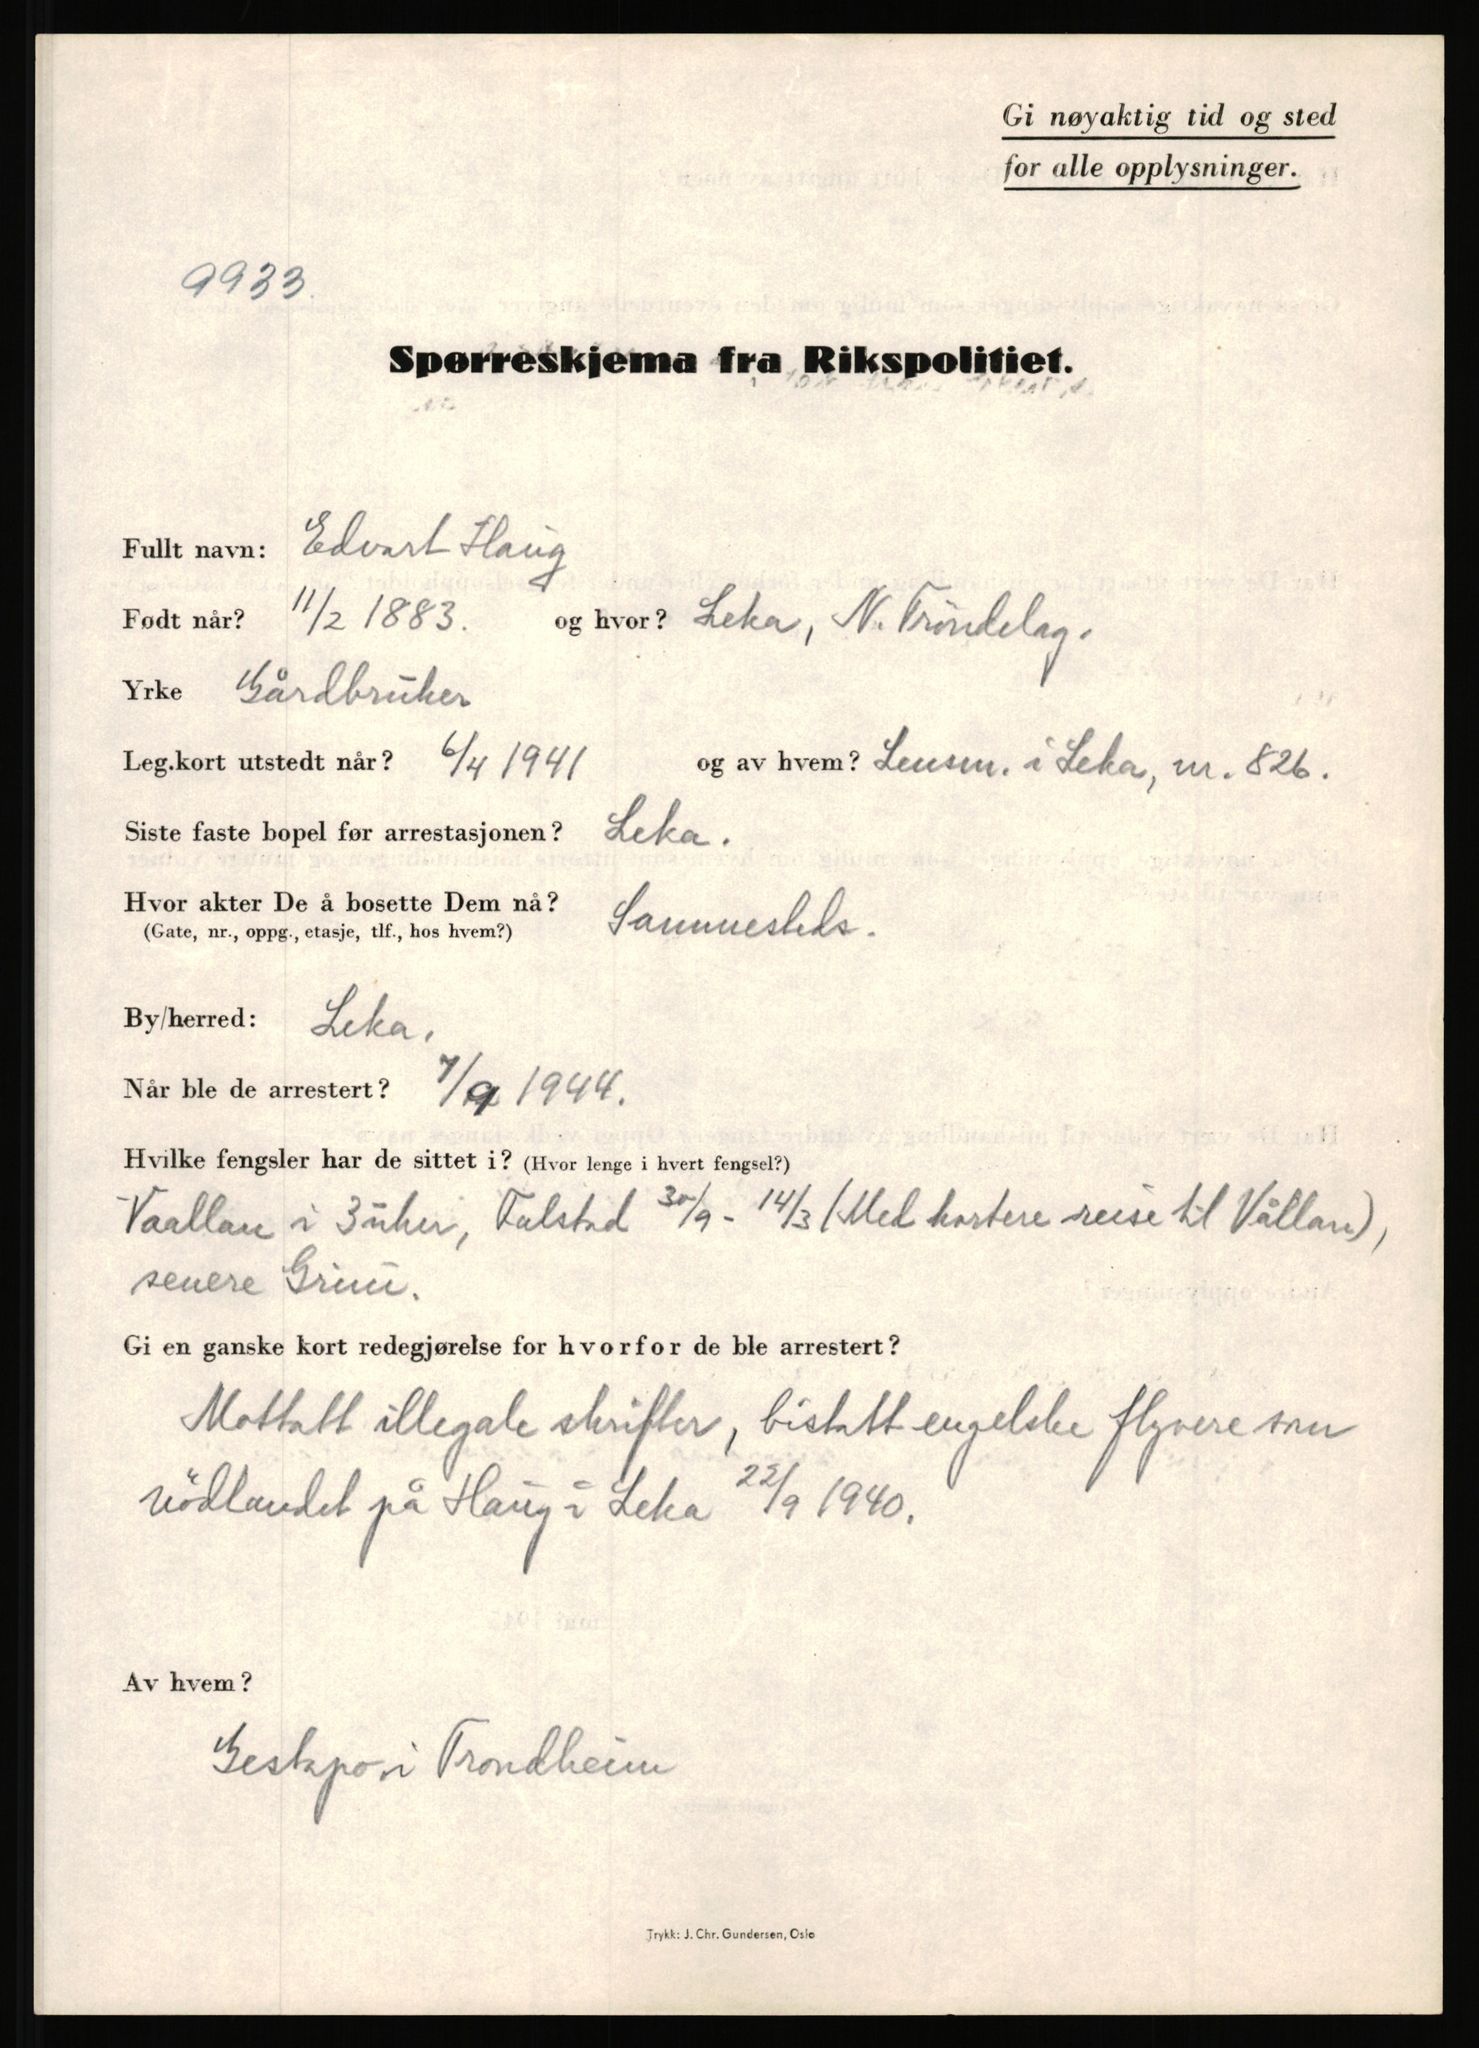 Gi nøyaktig tid og sted
for alle opplysninger.
9933.
Spørreskjema fra Rikspolitiet.
Fullt navn: Edvart Haug
Født når? 11/2 1883. og hvor? Leka, N. Tröndelag.
Yrke Gårdbruker
Leg.kort utstedt når? 6/4 1941 og av hvem? Lensm. i Leka, nr. 826.
Siste faste bopel før arrestasjonen? Leka.
Hvor akter De å bosette Dem nå? Sammesteds.
(Gate, nr., oppg., etasje, tlf., hos hvem?)
By/herred: Leka.
Når ble de arrestert? 7/9 1944.
Hvilke fengsler har de sittet i? (Hvor lenge i hvert fengsel?)
Vaallan i 3 uker, Falstad 30/9 - 14/3 (Med kortere reise til Vållan),
senere Grini.
Gi en ganske kort redegjørelse for hvorfor de ble arrestert?
Mottatt illegale skrifter, bistått engelske flyvere som
nödlandet på Haug i Leka 22/9 1940.
Av hvem?
Gestapo i Trondheim
Trykk: J. Chr. Gundersen, Oslo